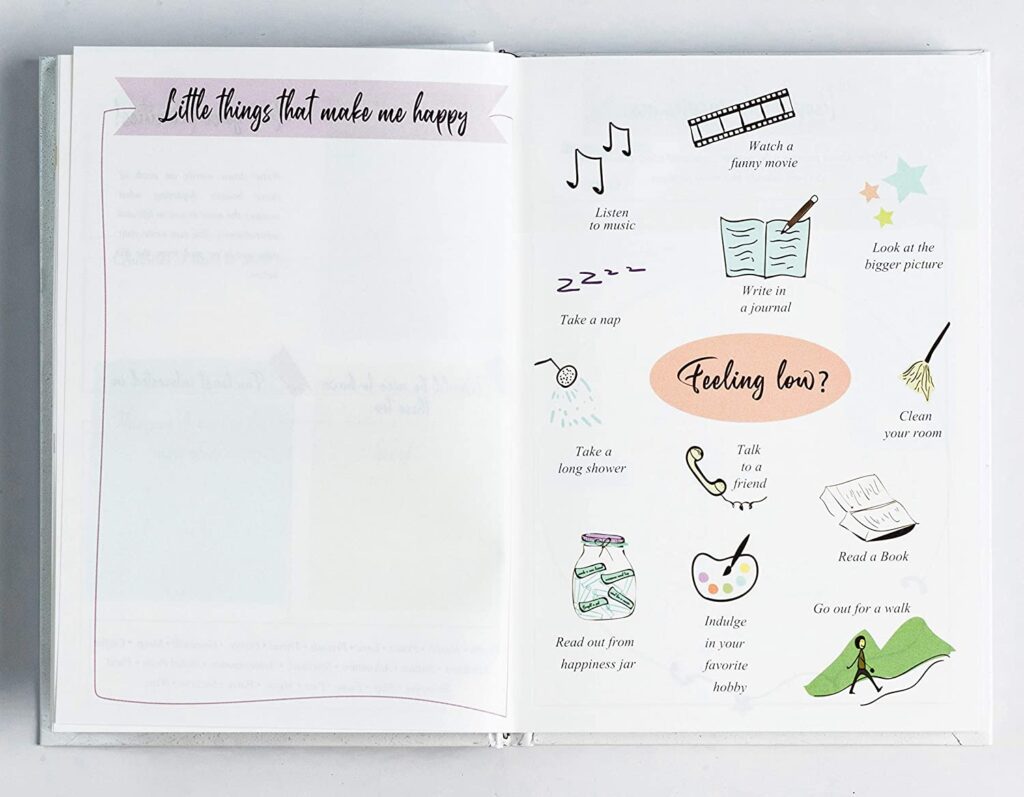 Little things that make me happy
Watch a
funny movie
Listen
to music
Look at the
bigger picture
Write in
a journal
Take a nap
Feeling low?
Clean
your room
Take a
long shower
Talk
to a
friend
Read a Book
Read out from
happiness jar
Indulge
in your
favorite
hobby
Go out for a walk